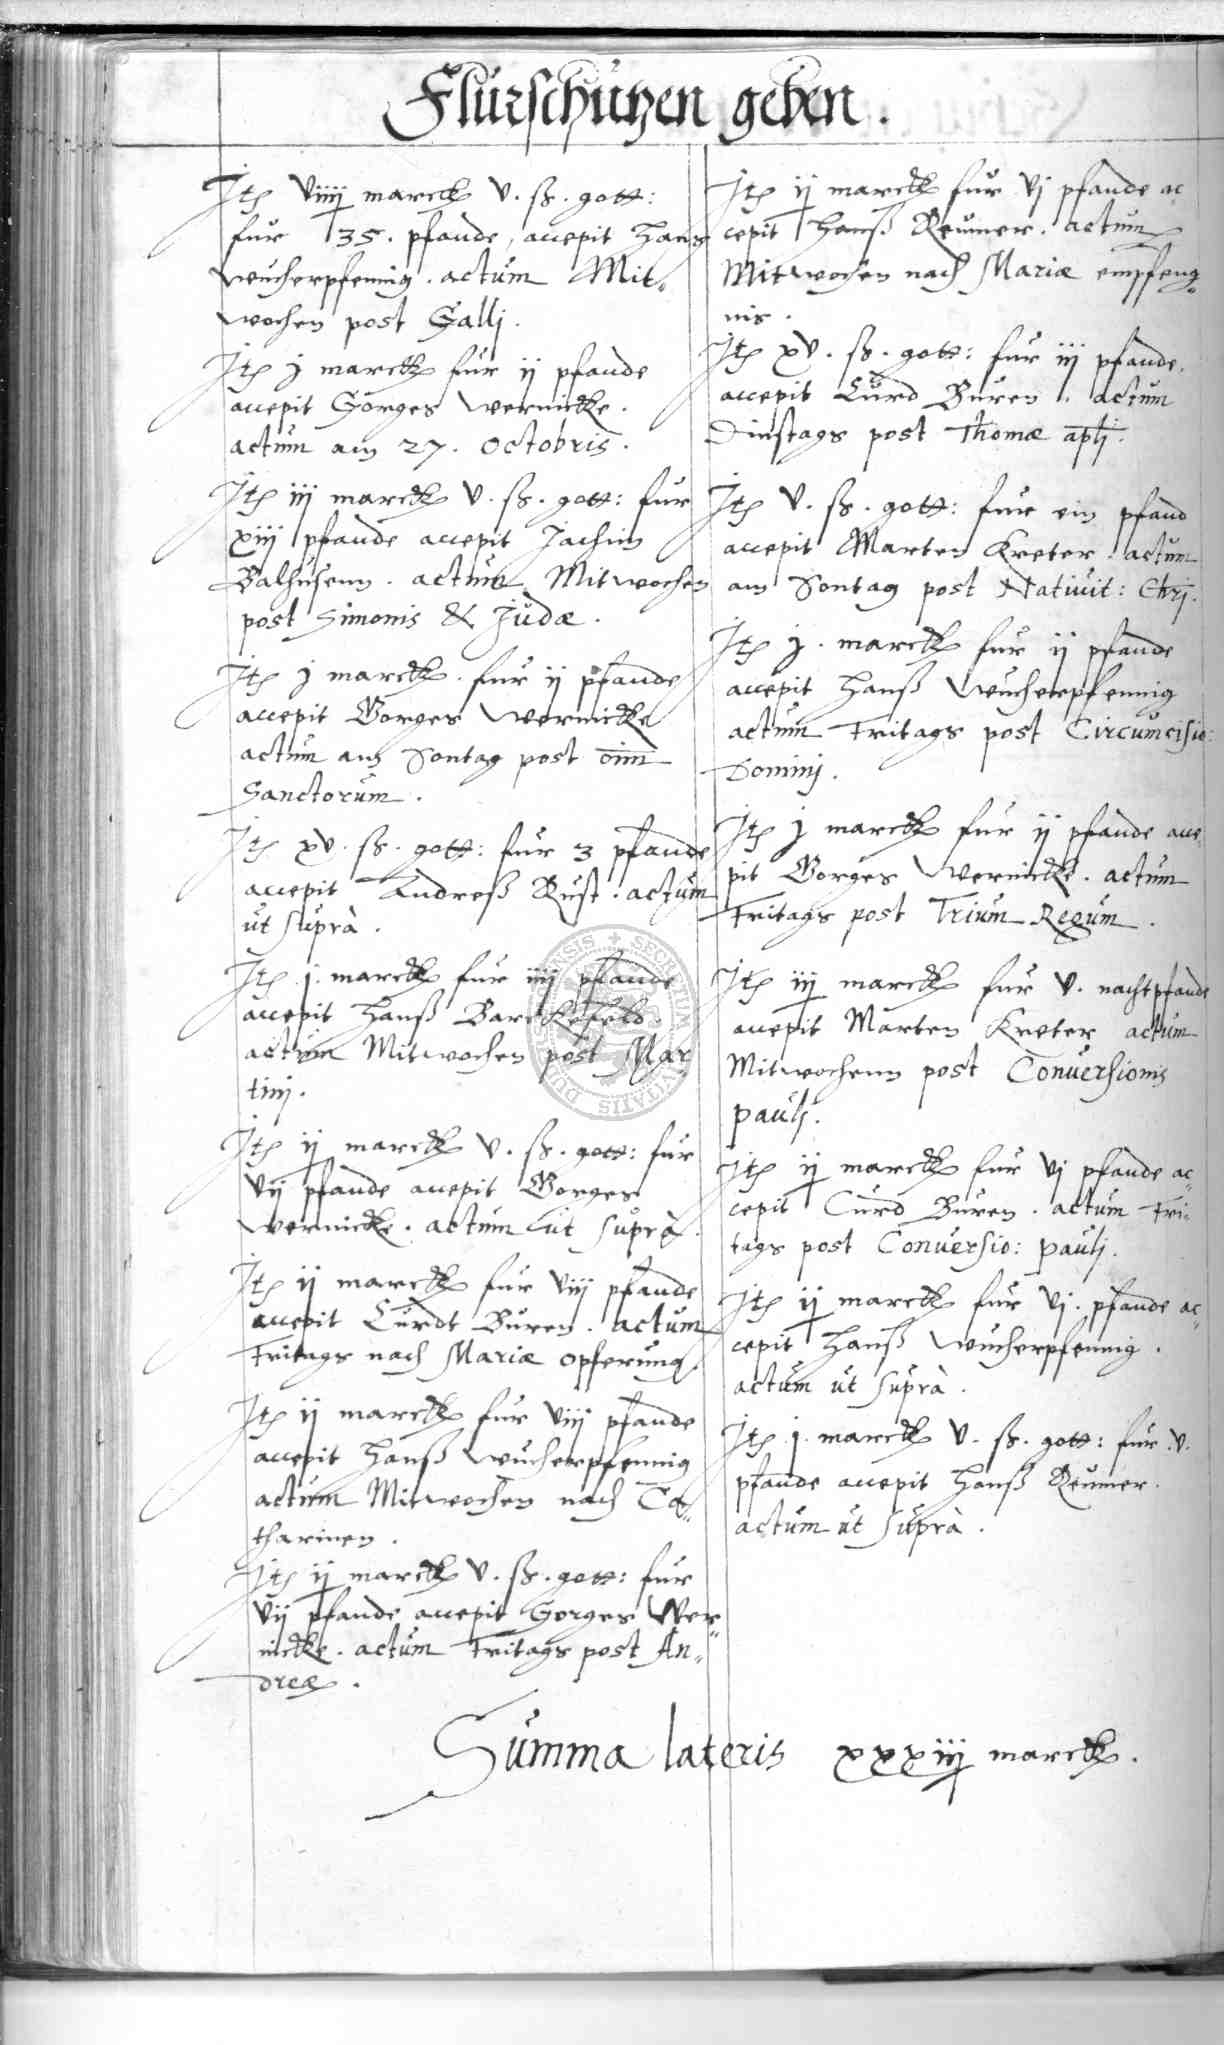 Flurschutzen geben.
Itm viiij marck v. ß. gott:
fur 35. pfande, accepit Hans
Wucherpfennig. actum Mit-
wochen post Gallj.
Itm j marck fur ij pfande
accepit Görges Wernicke.
actum am 27. Octobris.
Itm iij marck v. ß. gott: fur
xiij pfande accepit Jachim
Balhusenn. actum Mitwochen
post Simonis & Judæ.
Itm j marck. fur ij pfande
accepit Gorges Wernicke
actum am Sontag post oim
Sanctorum.
Itm xv. ß. gott: fur 3 pfande
accepit Andreß Rust. actum
ut suprà.
Itm j. marck fur iiij pfande
accepit Hanß Barckefeld.
actum Mitwochen post Mar
tinj.
Itm ij marck v. ß. gott: fur
vij pfande accepit Gorges
Wernicke. actum ut suprà.
Itm ij marck fur viij pfande
accepit Curdt Buren. actum
Fritags nach Mariæ opferung.
Itm ij marck fur viij pfande
accepit Hanß Wucherpfennig
actum Mitwochen nach Ca-
tharinen.
Itm ij marck v. ß. gott: fur
vij pfande accepit Gorges Wer-
nicke. actum Fritags post An-
dreæ.
Itm ij marck fur vj pfande ac
cepit Hanß Reumer. actum
Mitwochen nach Mariæ empfeng-
nis.
Itm xv. ß. gott: fur iij pfande.
accepit Curd Buren. actum
Dinstags post Thomæ apli.
Itm v. ß. gott: fur ein pfand
accepit Marten Kreter. actum
am Sontag post Natiuit: Chrj.
Itm j. marck fur ij pfande
accepit Hanß Wucherpfennig
actum Fritags post Circumcisio:
Dominj.
Itm j marck fur ij pfande acce-
pit Gorges Wernicke. actum
Fritags post Trium Regum.
Itm iij marck fur v. nachtpfande
accepit Marten Kreter actum
Mitwochenn post Conuersionis
Paulj.
Itm ij marck fur vj pfande ac-
cepit Curd Buren. actum Fri-
tags post Conuersio: Paulj.
Itm ij marck fur vj. pfande ac-
cepit Hanß Wucherpfennig.
actum ut suprà.
Itm j. marck v. ß. gott: fur v.
pfande accepit Hanß Reumer.
actum ut suprà.
Summa lateris xxxiij marck.